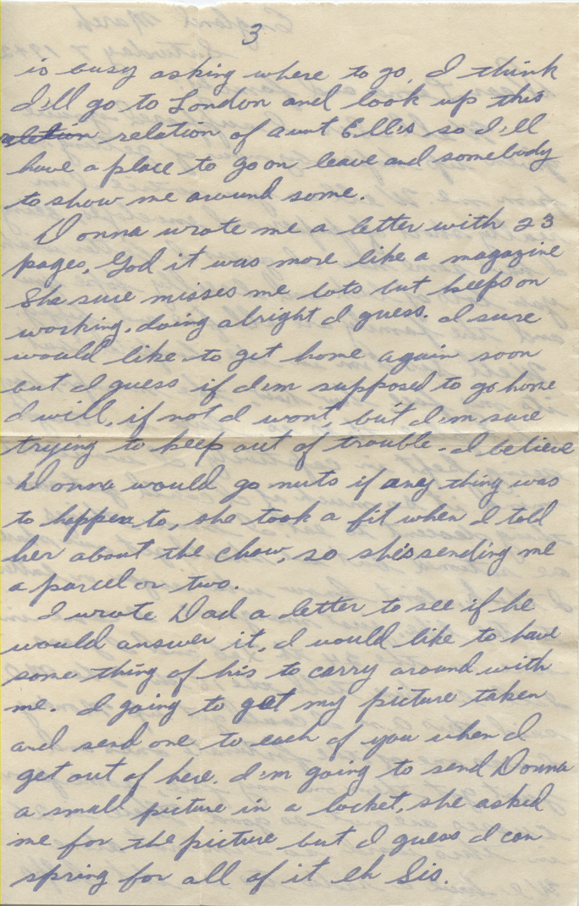 3
is busy asking where to go, I think
I'll go to London and look up this
relation of aunt Ellis so I'll
have a place to go on leave and somebody
to show me around some.
Donna wrote me a letter with 23
pages, God it was more like a magazine
She sure misses me lots but keeps on
working, doing alright I guess. I sure
would like to get home again soon
but I guess if I'm supposed to go home
I will, if not I wont, but I'm sure
trying to keep out of trouble. I believe
Donna would go nuts if any thing was
to happen to, she took a fit when I told
her about the chow, so shes sending me
a parcel or two.
I wrote Dad a letter to see if he
would answer it, I would like to have
some thing of his to carry around with
me. I going to get my picture taken
and send one to each of you when I
get out of here. I'm going to send Donna
a small picture in a locket, she asked
me for the picture but I guess I can
spring for all of it eh Sis.